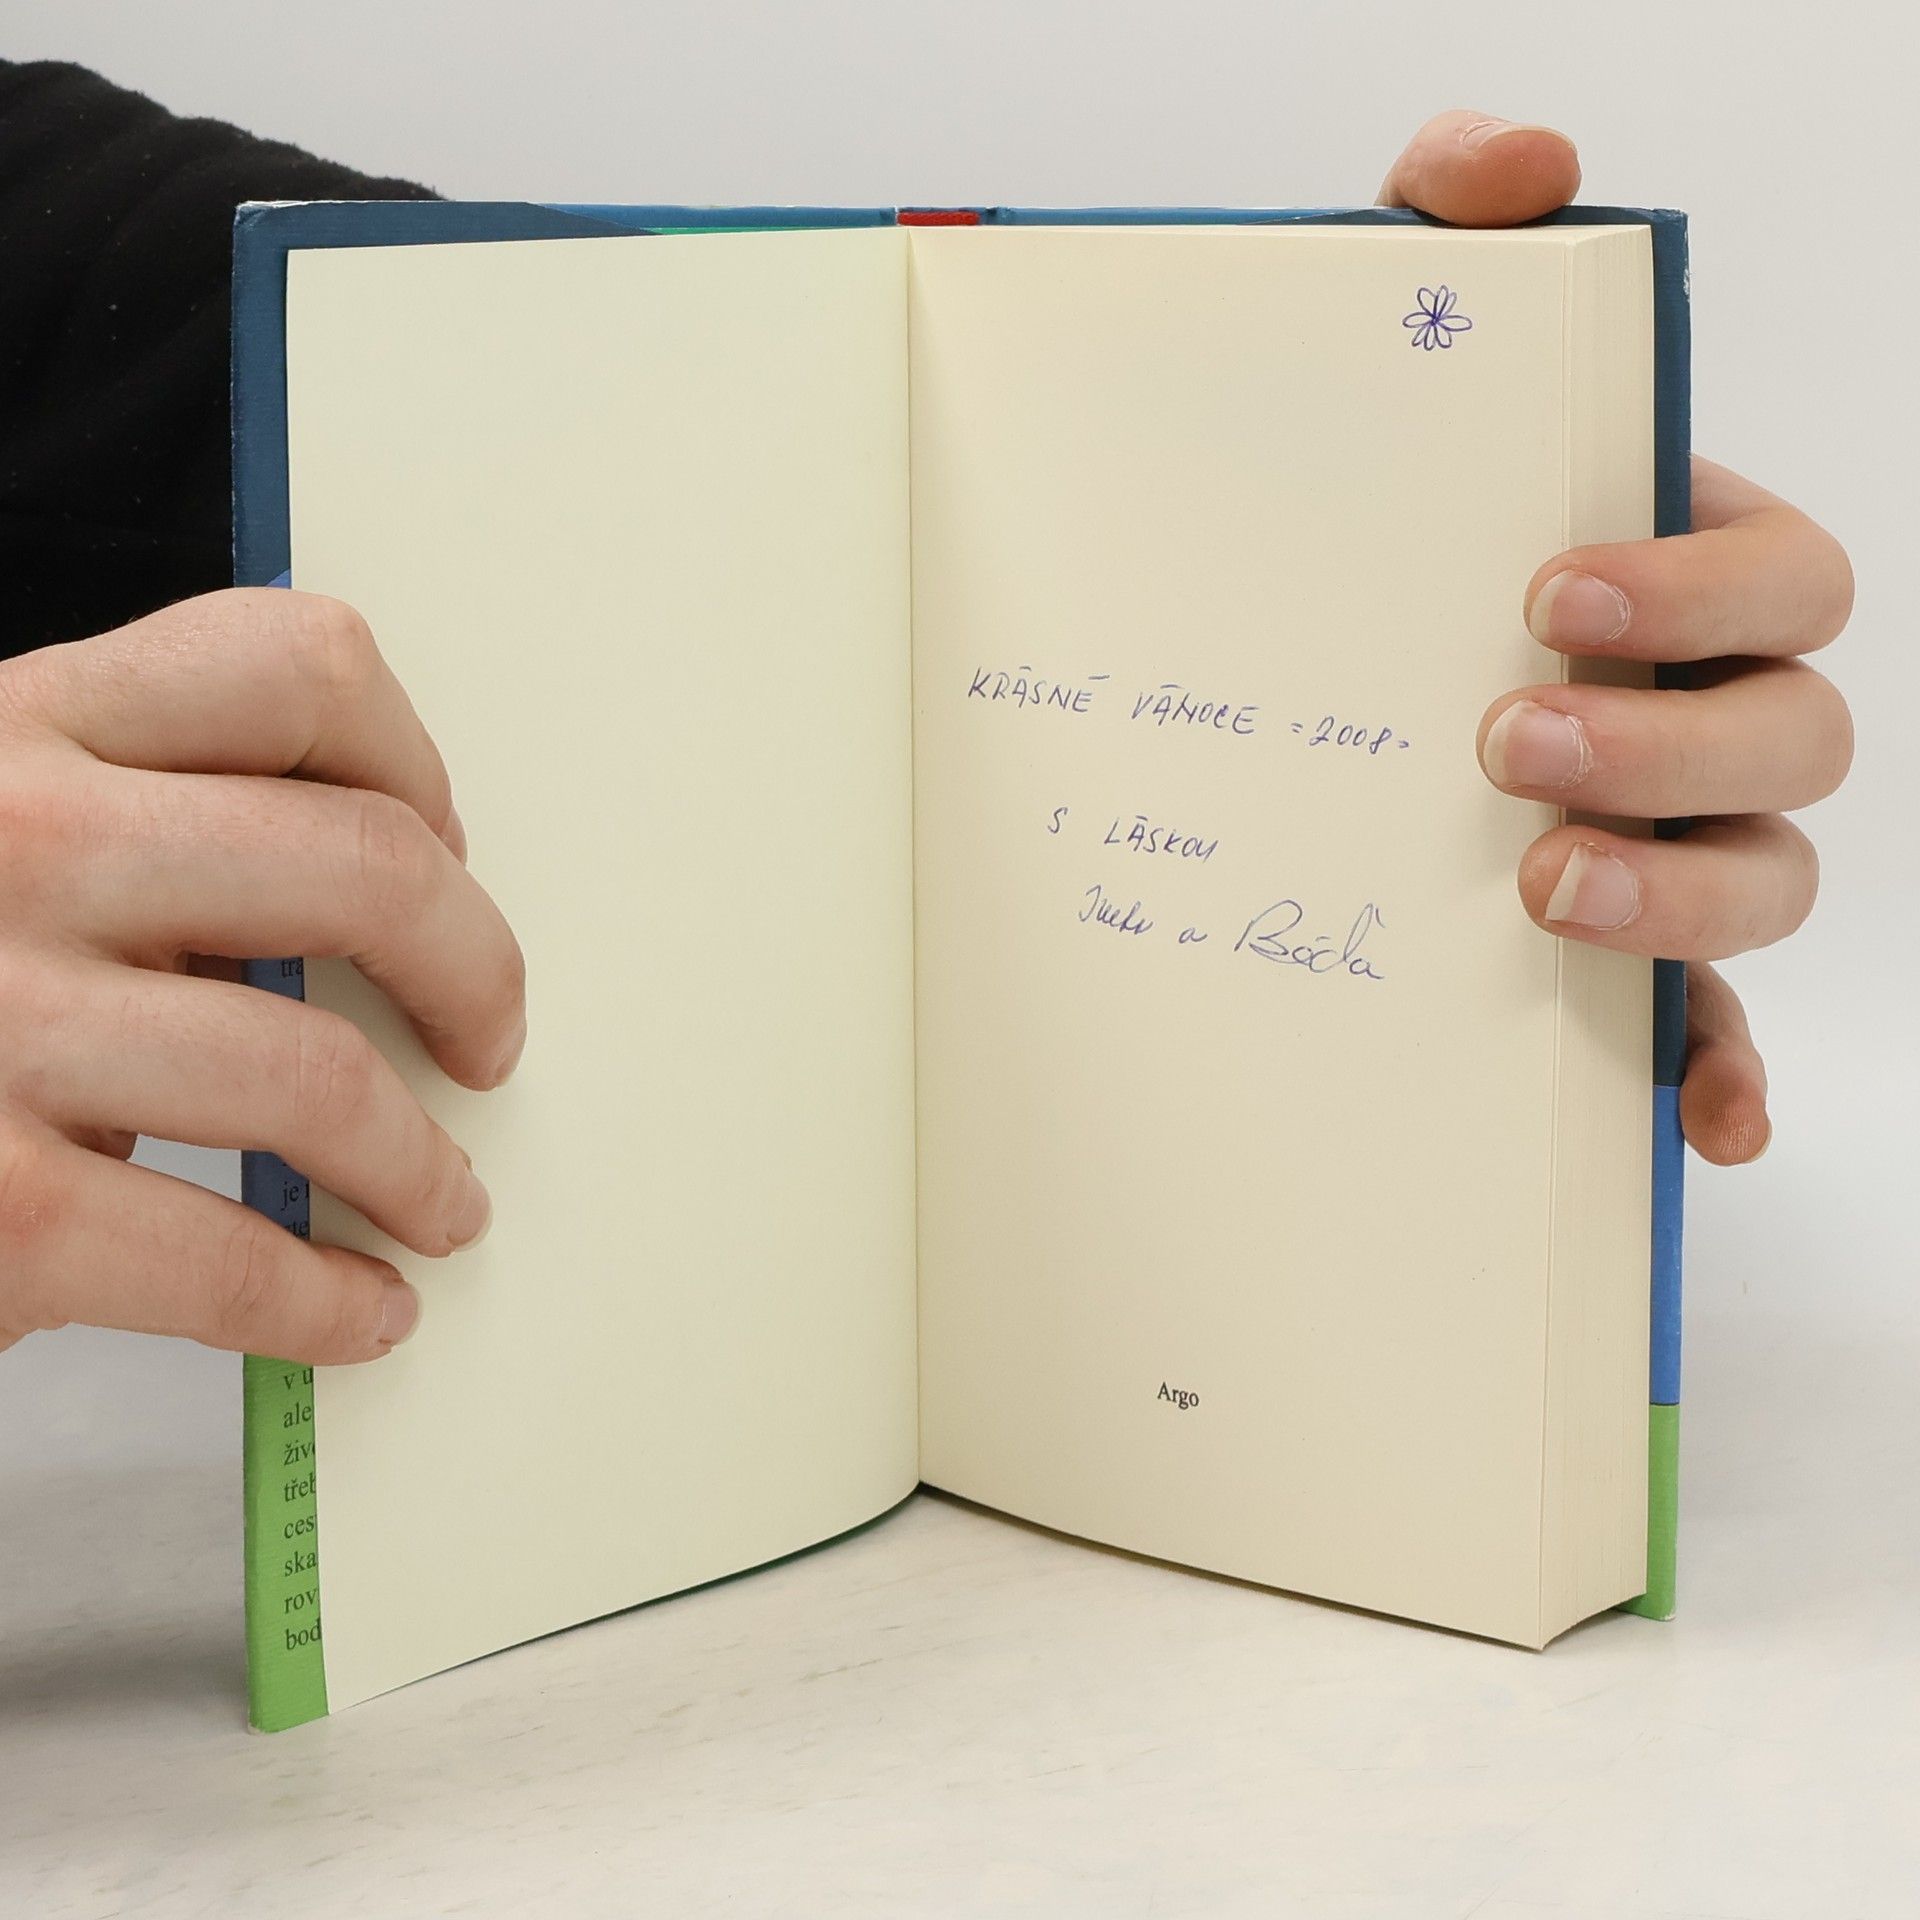 tra
je
v u
ale
živ
třeb
ces
ska
rov
bod
KRÁSNÉ VÁNOCE =2008=
S LÁSKOU
a Bóďa
Argo